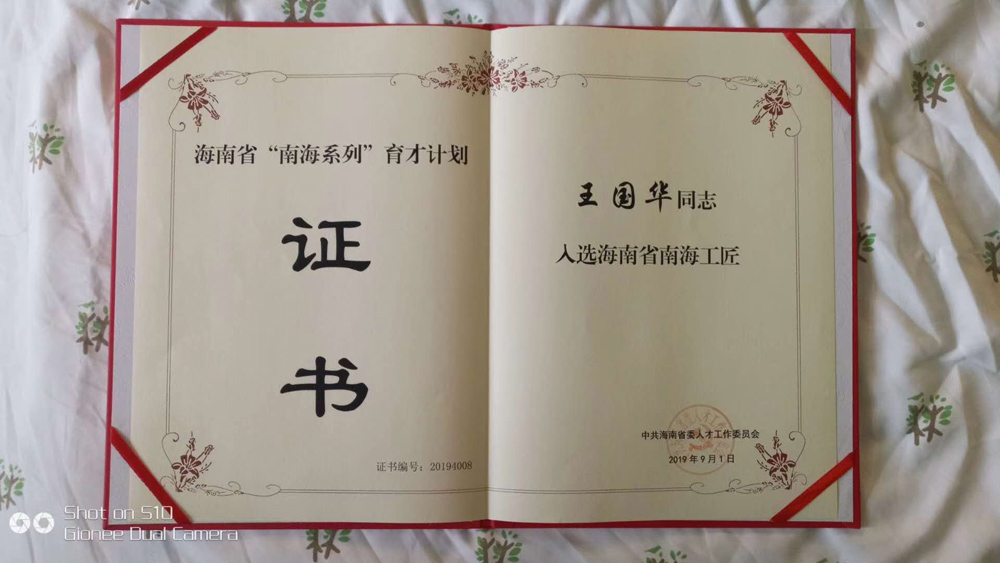 海南省“南海系列”育才计划
证
书
证书编号：20194008
王国华同志
入选海南省南海工匠
中共海南省委人才工作委员会
2019年9月1日
Shot on S10
Gionee Dual Camera